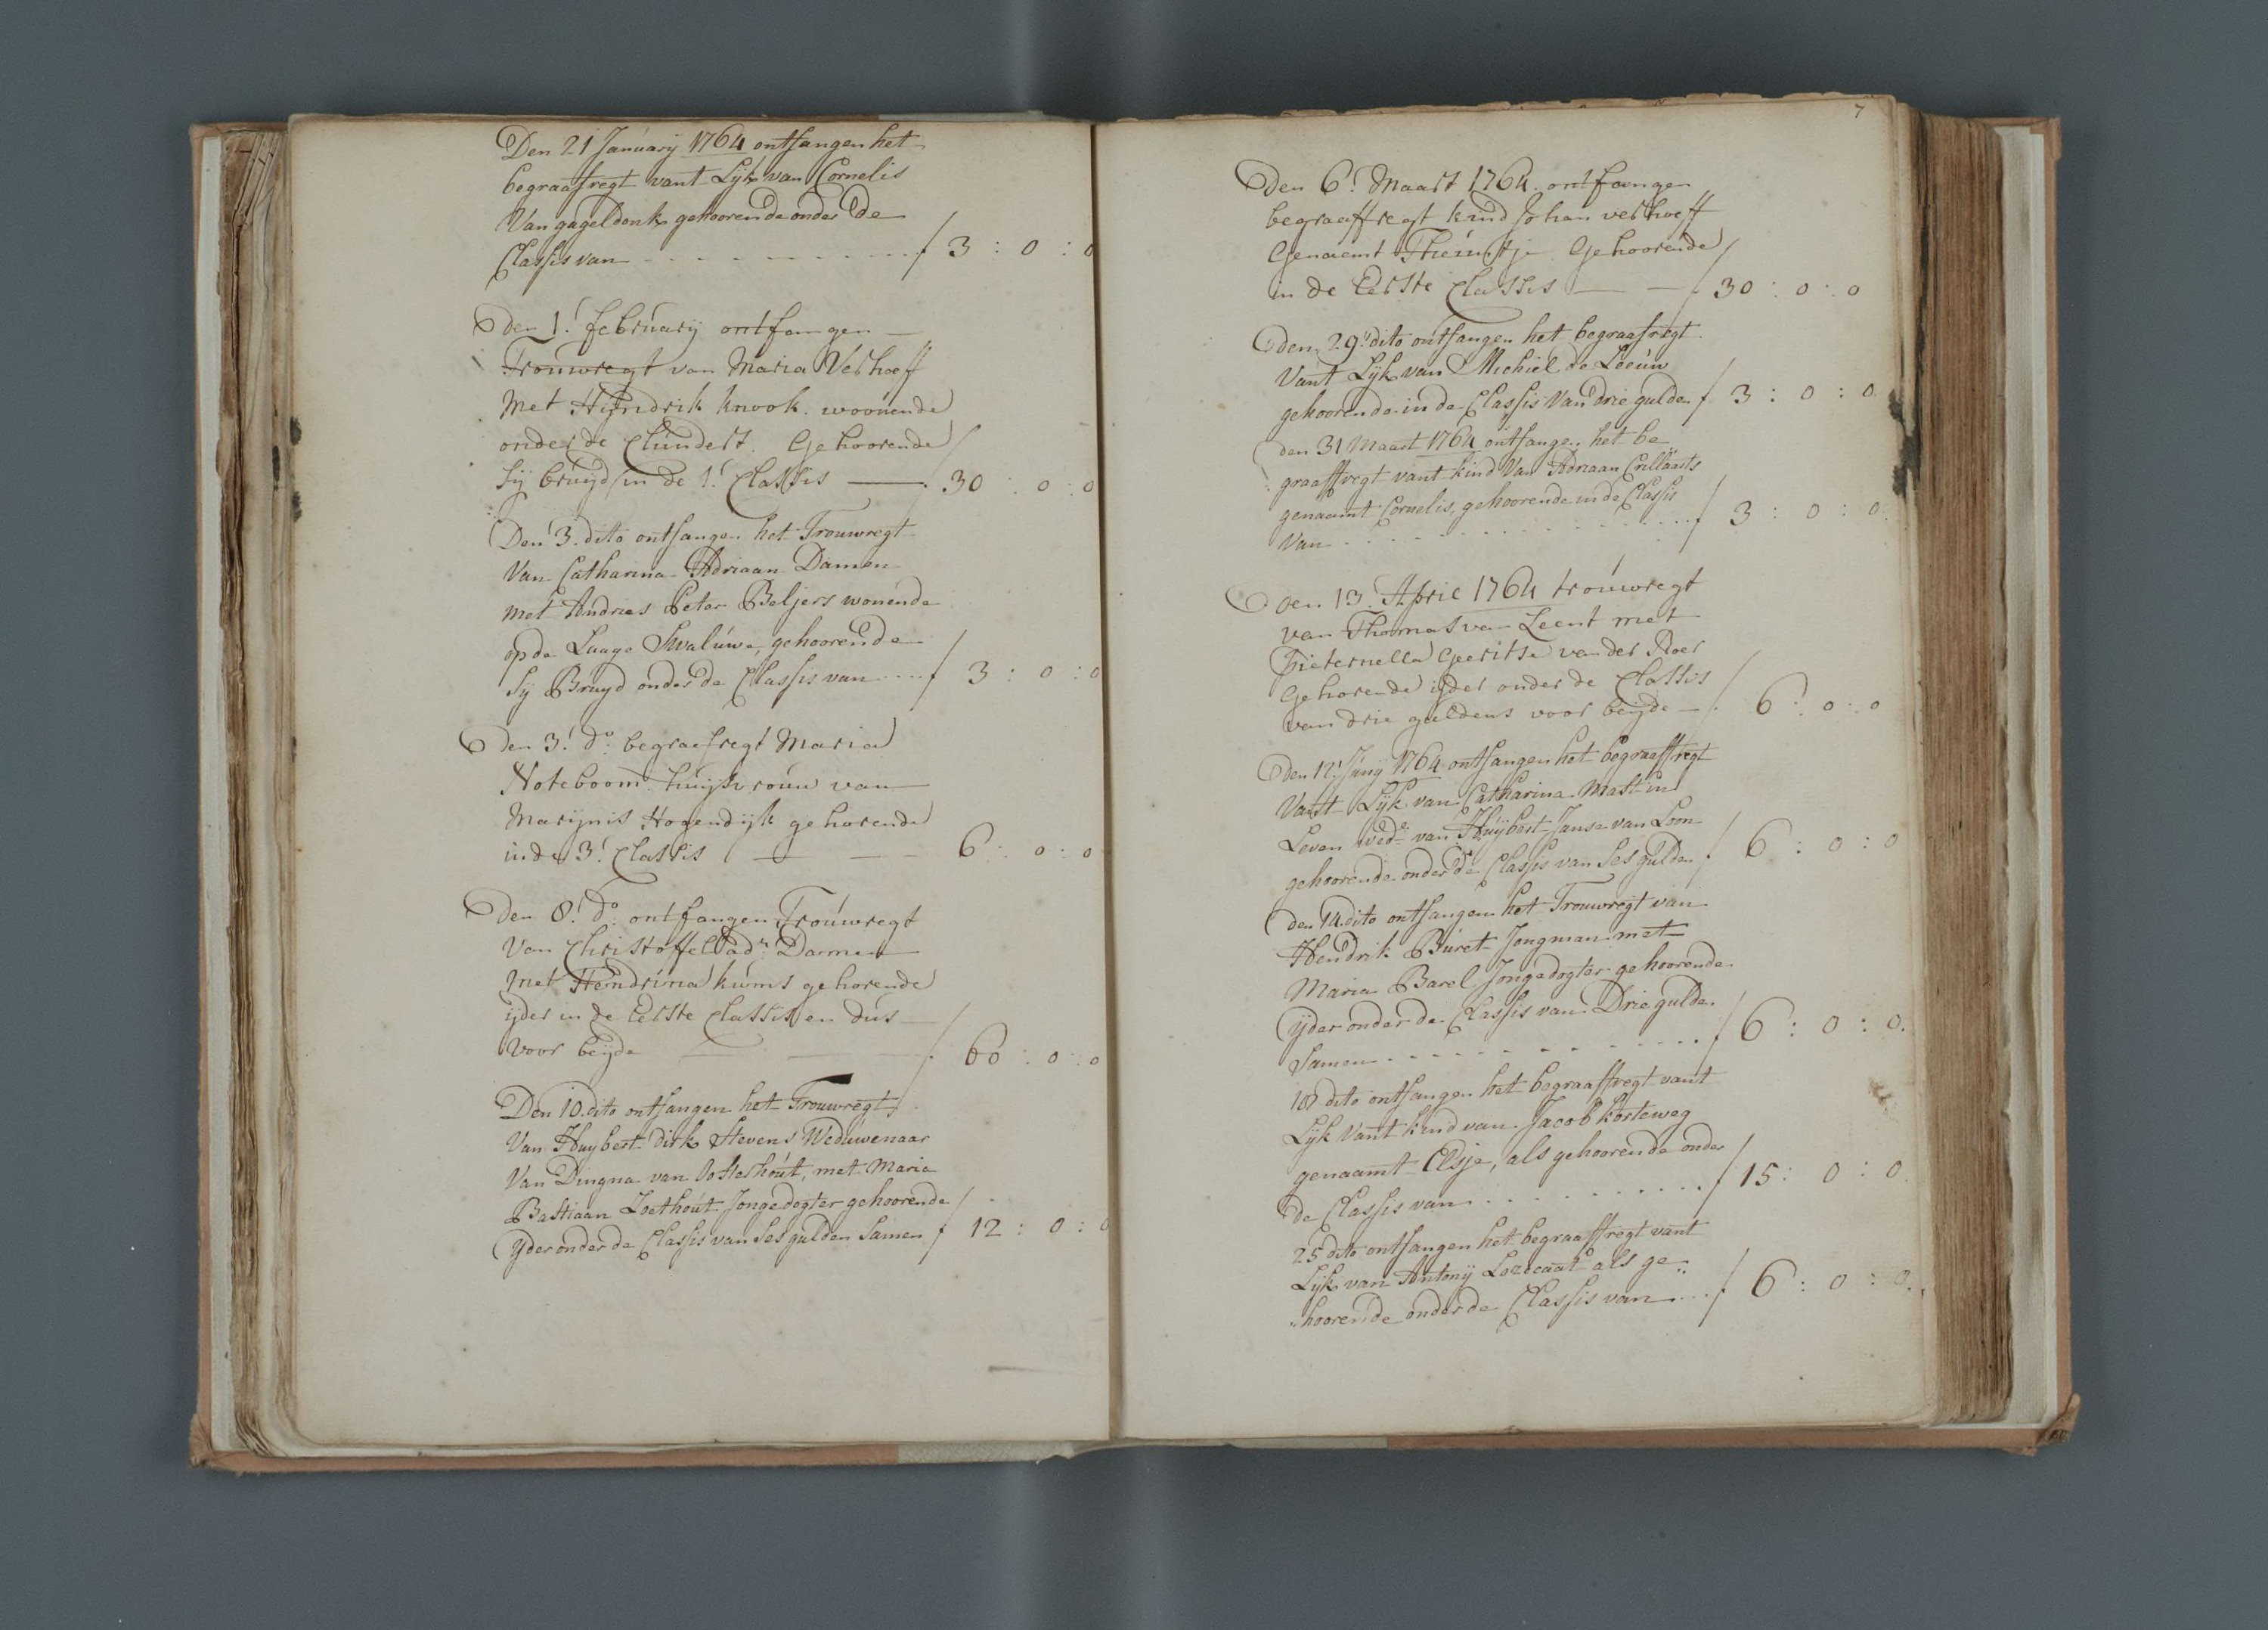 Den 21 January 1764 ontfangen het
begraafregt vant Lijk van Cornelis
Van gageldonk gehoorende onder de
Classis van - - - - - - - - - - f 3 : 0 : 0
Den 1.' february ontfangen —
Trouwregt van Maria Verhoeff
Met Hendrik knook. woonende
onder de Clundert. Gehoorende
sij bruijd in de 1.' Classis — f 30 : 0 : 0
Den 3. dito ontfangen het Trouwregt
Van Catharina Adriaan Damen
met Andries Peter Beljers wonende
op de Laage Swaluwe, gehoorende
sij Bruyd onder de Classis van .... f 3 : 0 : 0
Den 3.' do. begraefregt Maria
Noteboom huijsvrouw van
Marijnis Hogendijk gehorende
inde 3.' Classis — — - 6 : 0 : 0
Den 8.' do. ontfangen Trouwregt
Van Christoffel adr. Damen
met Hendrina kums gehorende
ijder in de Eerste Classis en dus
voor beijde — — f 60 : 0 : 0
Den 10. dito ontfangen het Trouwregt
Van Huybert dirk Stevens Weduwenaar
Van Dingna van Oosterhout, met Maria
Bastiaan Zoethout Jongedogter gehoorende
Yder onder de Classis van Ses gulden Samen f 12 : 0 : 0
7
Den 6.' Maart 1764. ontfangen
begraeffregt kind Johan verhoeff
Genaemt Theuntje Gehoorende
in de Eerste Classis — — f 30 : 0 : 0
den 29.' dito ontfangen het begraafregt
Vant Lijk van Michiel de Leeuw
gehoorende in de Classis Van drie gulden f 3 : 0 : 0
den 31 Maart 1764 ontfangen het be
graaffregt vant kind Van Adriaan Crillaarts
genaamt Cornelis, gehoorende in de Classis
Van - - - - - - - - - - - - f 3 : 0 : 0.
Den 13. April 1764 trouwregt
van Thomas van Leent met
Pieternella Geeritse van der Roer
Gehorende ijder onder de Classis
van drie guldens voor beijde — f. 6 : 0 : 0
Den 12. Juny 1764 ontfangen het begraaffregt
Vant Lijk van Catharina Mast in
Leven wede. van Huijbert Janse van Loon
gehoorende onder de Classis van Ses gulden f 6 : 0 : 0
den 14. dito ontfangen het Trouwregt van
Hendrik Buret Jongman met
Maria Barel Jongedogter gehoorende
Yder onder de Classis van Drie gulde.
Samen - - - - - - - - - - f 6 : 0 : 0.
18 dito ontfangen het begraaffregt vant
Lijk Vant kind van Jacob korteweg
genaamt Elsje, als gehoorende onder
de Classis van . . . . . . . . . . f 15 : 0 : 0.
25 dito ontfangen het begraaffregt vant
Lijk van Antony als ge„
„hoorende onder de Classis van .... f 6 : 0 : 0.